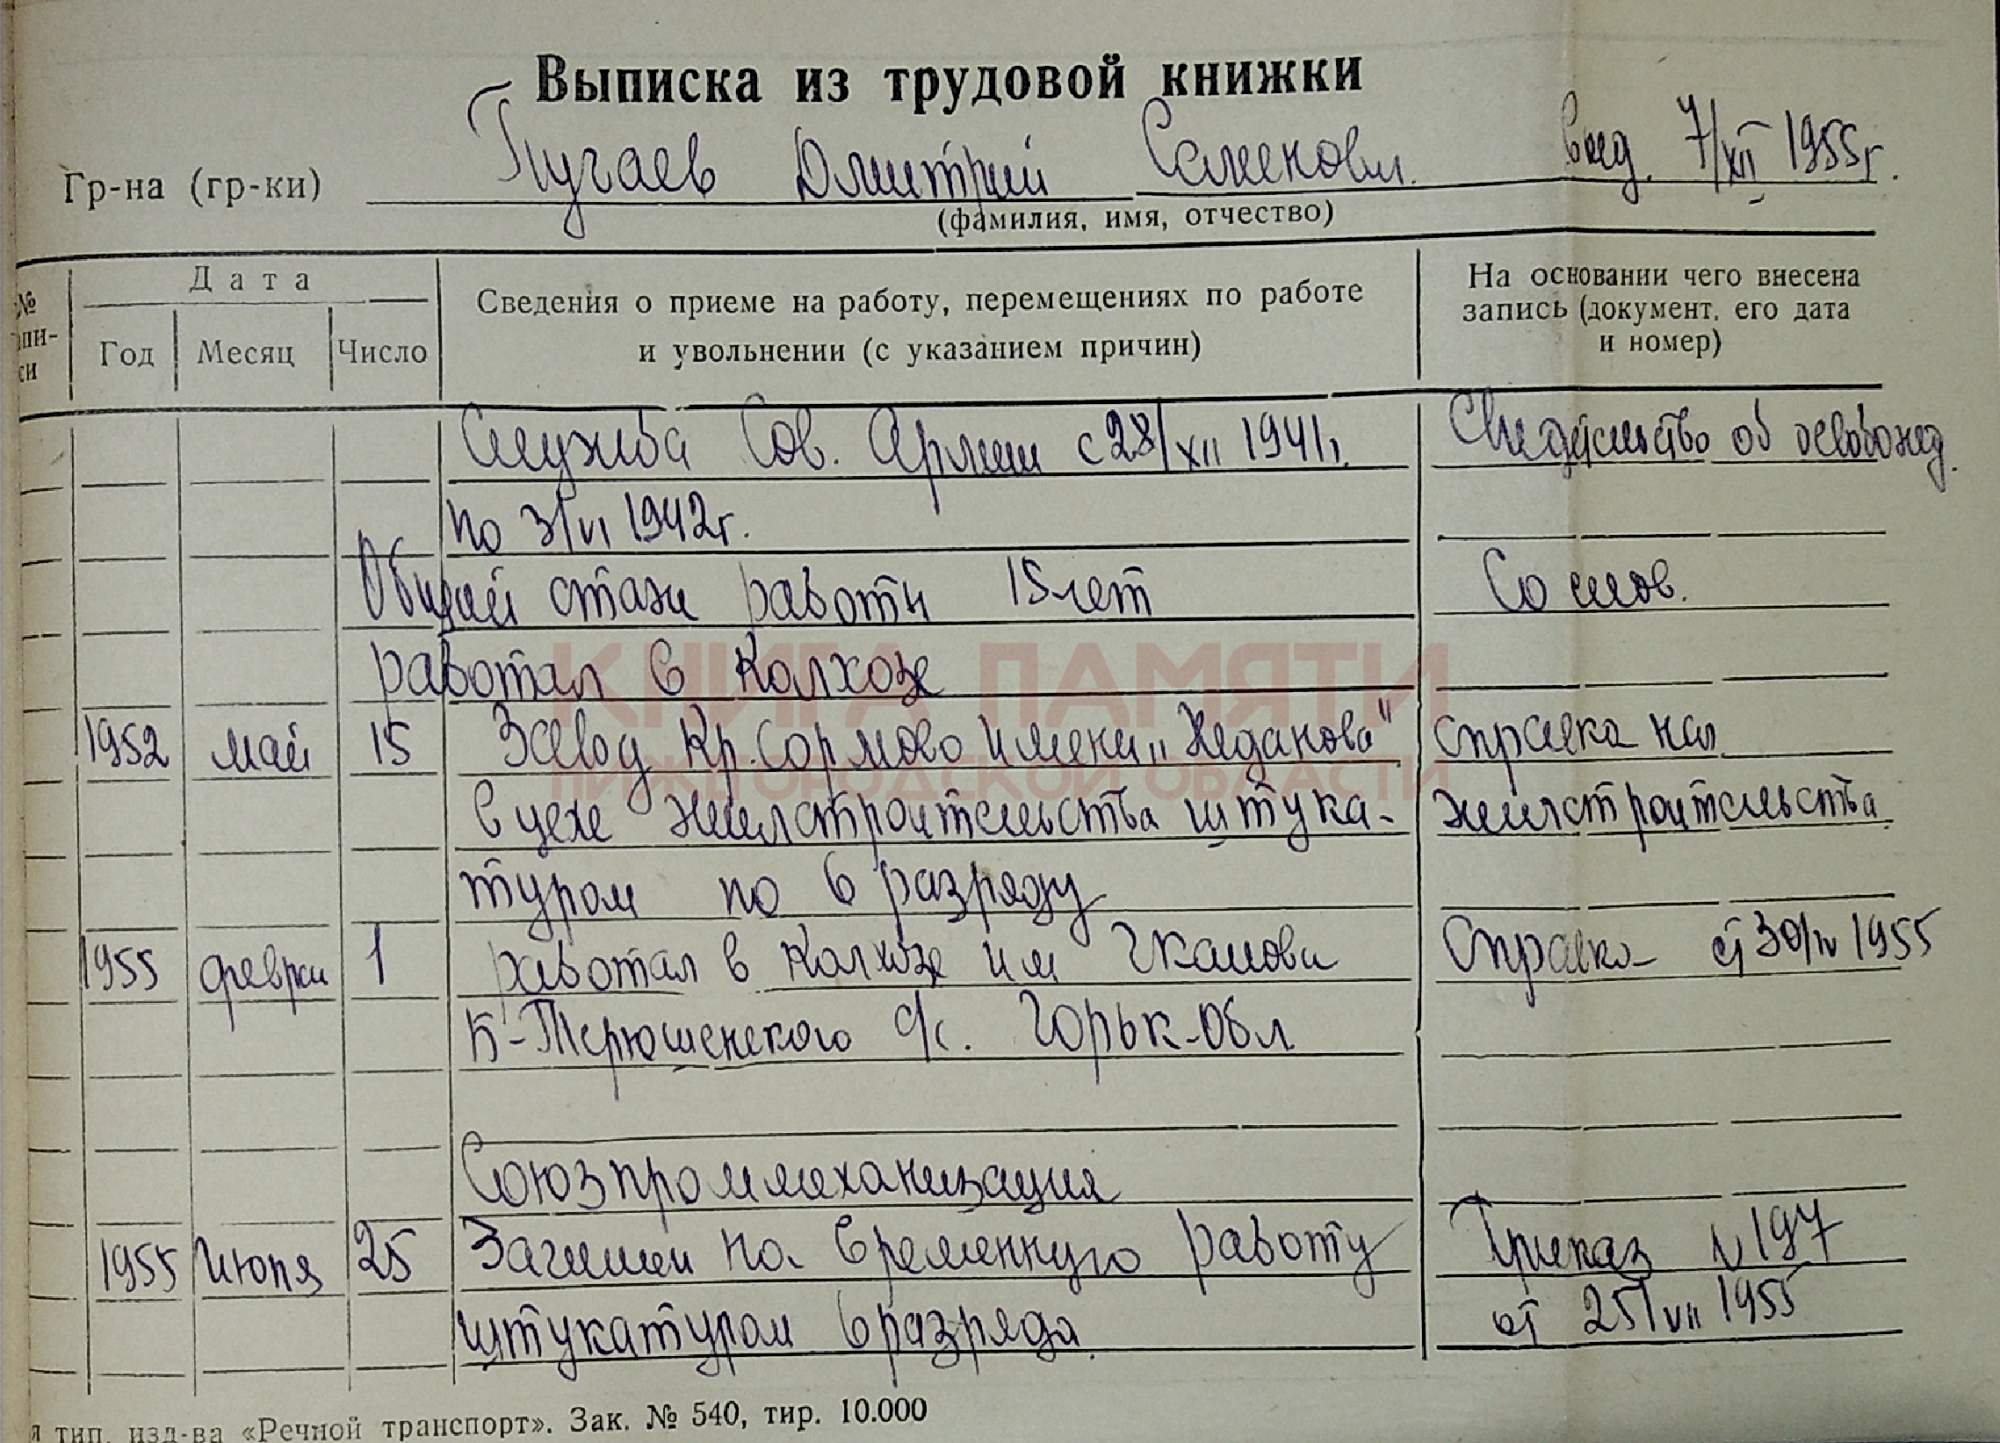 Выписка из трудовой книжки
Гр-на (гр-ки) Пугаев Дмитрий Семенович. выд. 7/XII 1955г.
(фамилия, имя, отчество)
№ запи-си
Дата
Год Месяц Число
Сведения о приеме на работу, перемещениях по работе
и увольнении (с указанием причин)
На основании чего внесена
запись (документ, его дата
и номер)
Служба Сов. Армии с 28/XII 1941г. Свидетельство об освобожд.
по 3/VI 1942г.
Общий стаж работы 15 лет Со слов.
работал в колхозе
1952 май 15 Завод Кр. Сормово имени „Жданова" справка нач.
в цехе жилстроительства штука- жилстроительства
туром по 6 разряду
1955 феврал 1 работал в колхозе им Чкалова Справка от 30/IV 1955
Б-Терюшенского с/с. Горьк-обл
Союзпроммеханизация
1955 Июля 25 Зачислен на временную работу Приказ N 197
штукатуром 6 разряда. от 25/VII 1955
КНИГА ПАМЯТИ
НИЖЕГОРОДСКОЙ ОБЛАСТИ
я тип. изд-ва «Речной транспорт». Зак. № 540, тир. 10.000